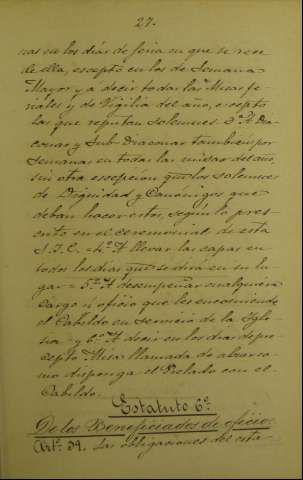 27.
nas en los días de feria en que se rece
de ella, escepto en los de Semana
Mayor y a decir todas las Misas fe-
riales y de Vigilia del año, escepto
las que reputan solemnes 3.ª A Dia-
conar y Sub-Diaconar tambien por
semanas en todas las misas del año,
sin otra escepcion que los solemnes
de Dignidad y Canónigos, que
deban hacer estos, segun lo pres-
crito en el ceremonial de esta
S. I. C. - 4.ª A llevar las capas en
todos los dias que se dirá en su lu-
gar - 5.ª A desempeñar cualquiera
cargo ú oficio que les encomiende
el Cabildo en servicio de la Igle-
sia - y 6.ª A decir en los dias de pre-
cepto Misa llamada de alva co-
mo disponga el Prelado con el
Cabildo.
Estatuto 6º
De los Beneficiados de oficio.
Artº. 39. Las obligaciones del